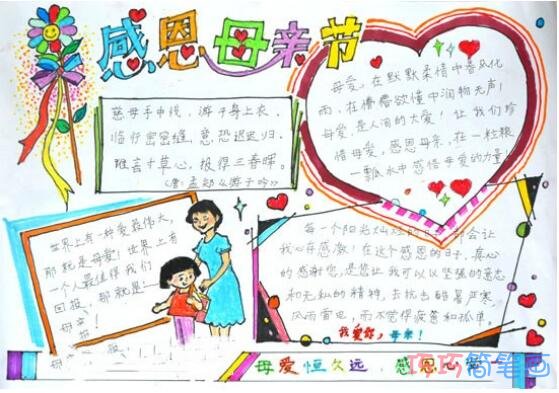 感恩母亲节
慈母手中线，游子身上衣，
临行密密缝，意恐迟迟归，
谁言寸草心，报得三春晖。
《唐·孟郊《游子吟》
母爱，在默默柔情中春风化
雨，在懵懂欲懂中润物无声！
母爱是人间的大爱！让我们珍
惜母爱，感恩母亲，在一粒粮
一瓢水中感悟母爱的力量！
世界上有一种爱最伟大，
那就是母爱！世界上有
一个人最值得我们
回报，那就是
母亲！
每一个阳光灿烂的 都会让
我心存感激！在这个感恩的日子，真心
的感谢您，是您让我可以以坚强的意志
和无私的精神，去抗击酷暑严寒
风雨雷电，而不觉得疲惫和孤单。
我爱你，母亲！
母爱恒久远，感恩
巧巧简笔画